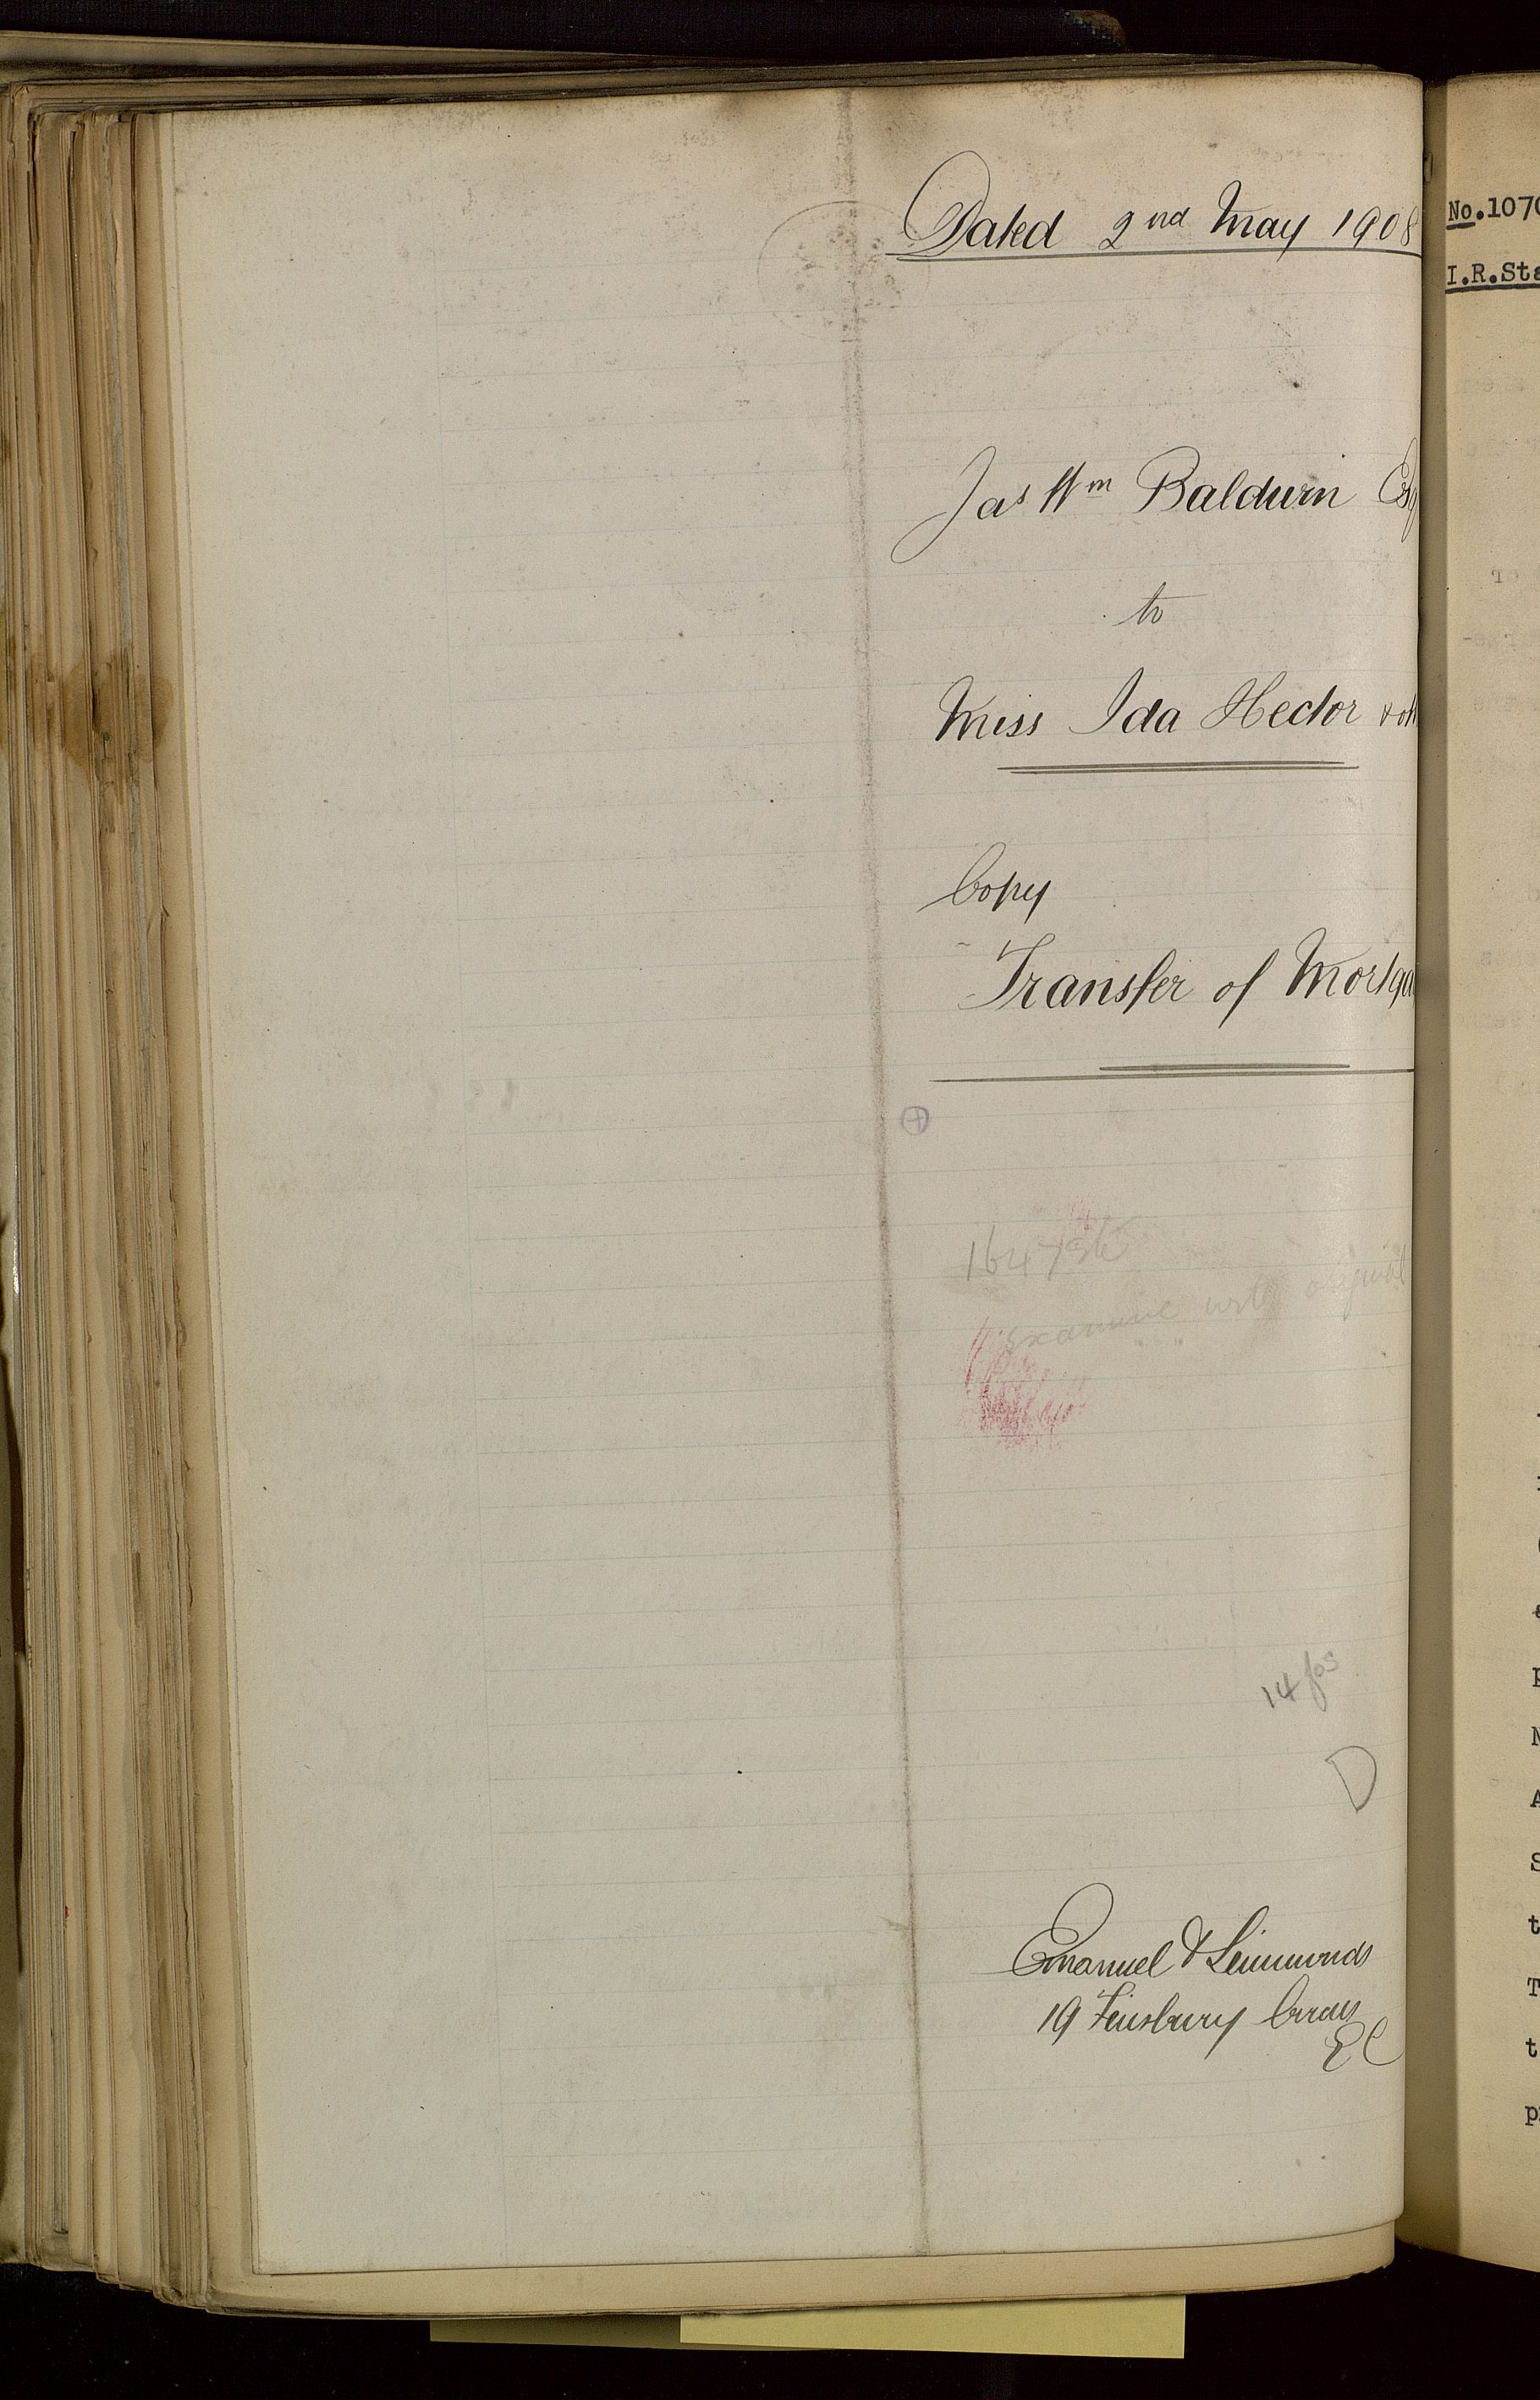 Dated 2nd May 1908
Jas Wm Baldwin Esq
to
Miss Ida Hector &
Copy
Transfer of Mortga
examine with original
14 fos
D
Emanuel & Simmonds
19 Finsbury Circus
EC
No.1070
I.R.Sta